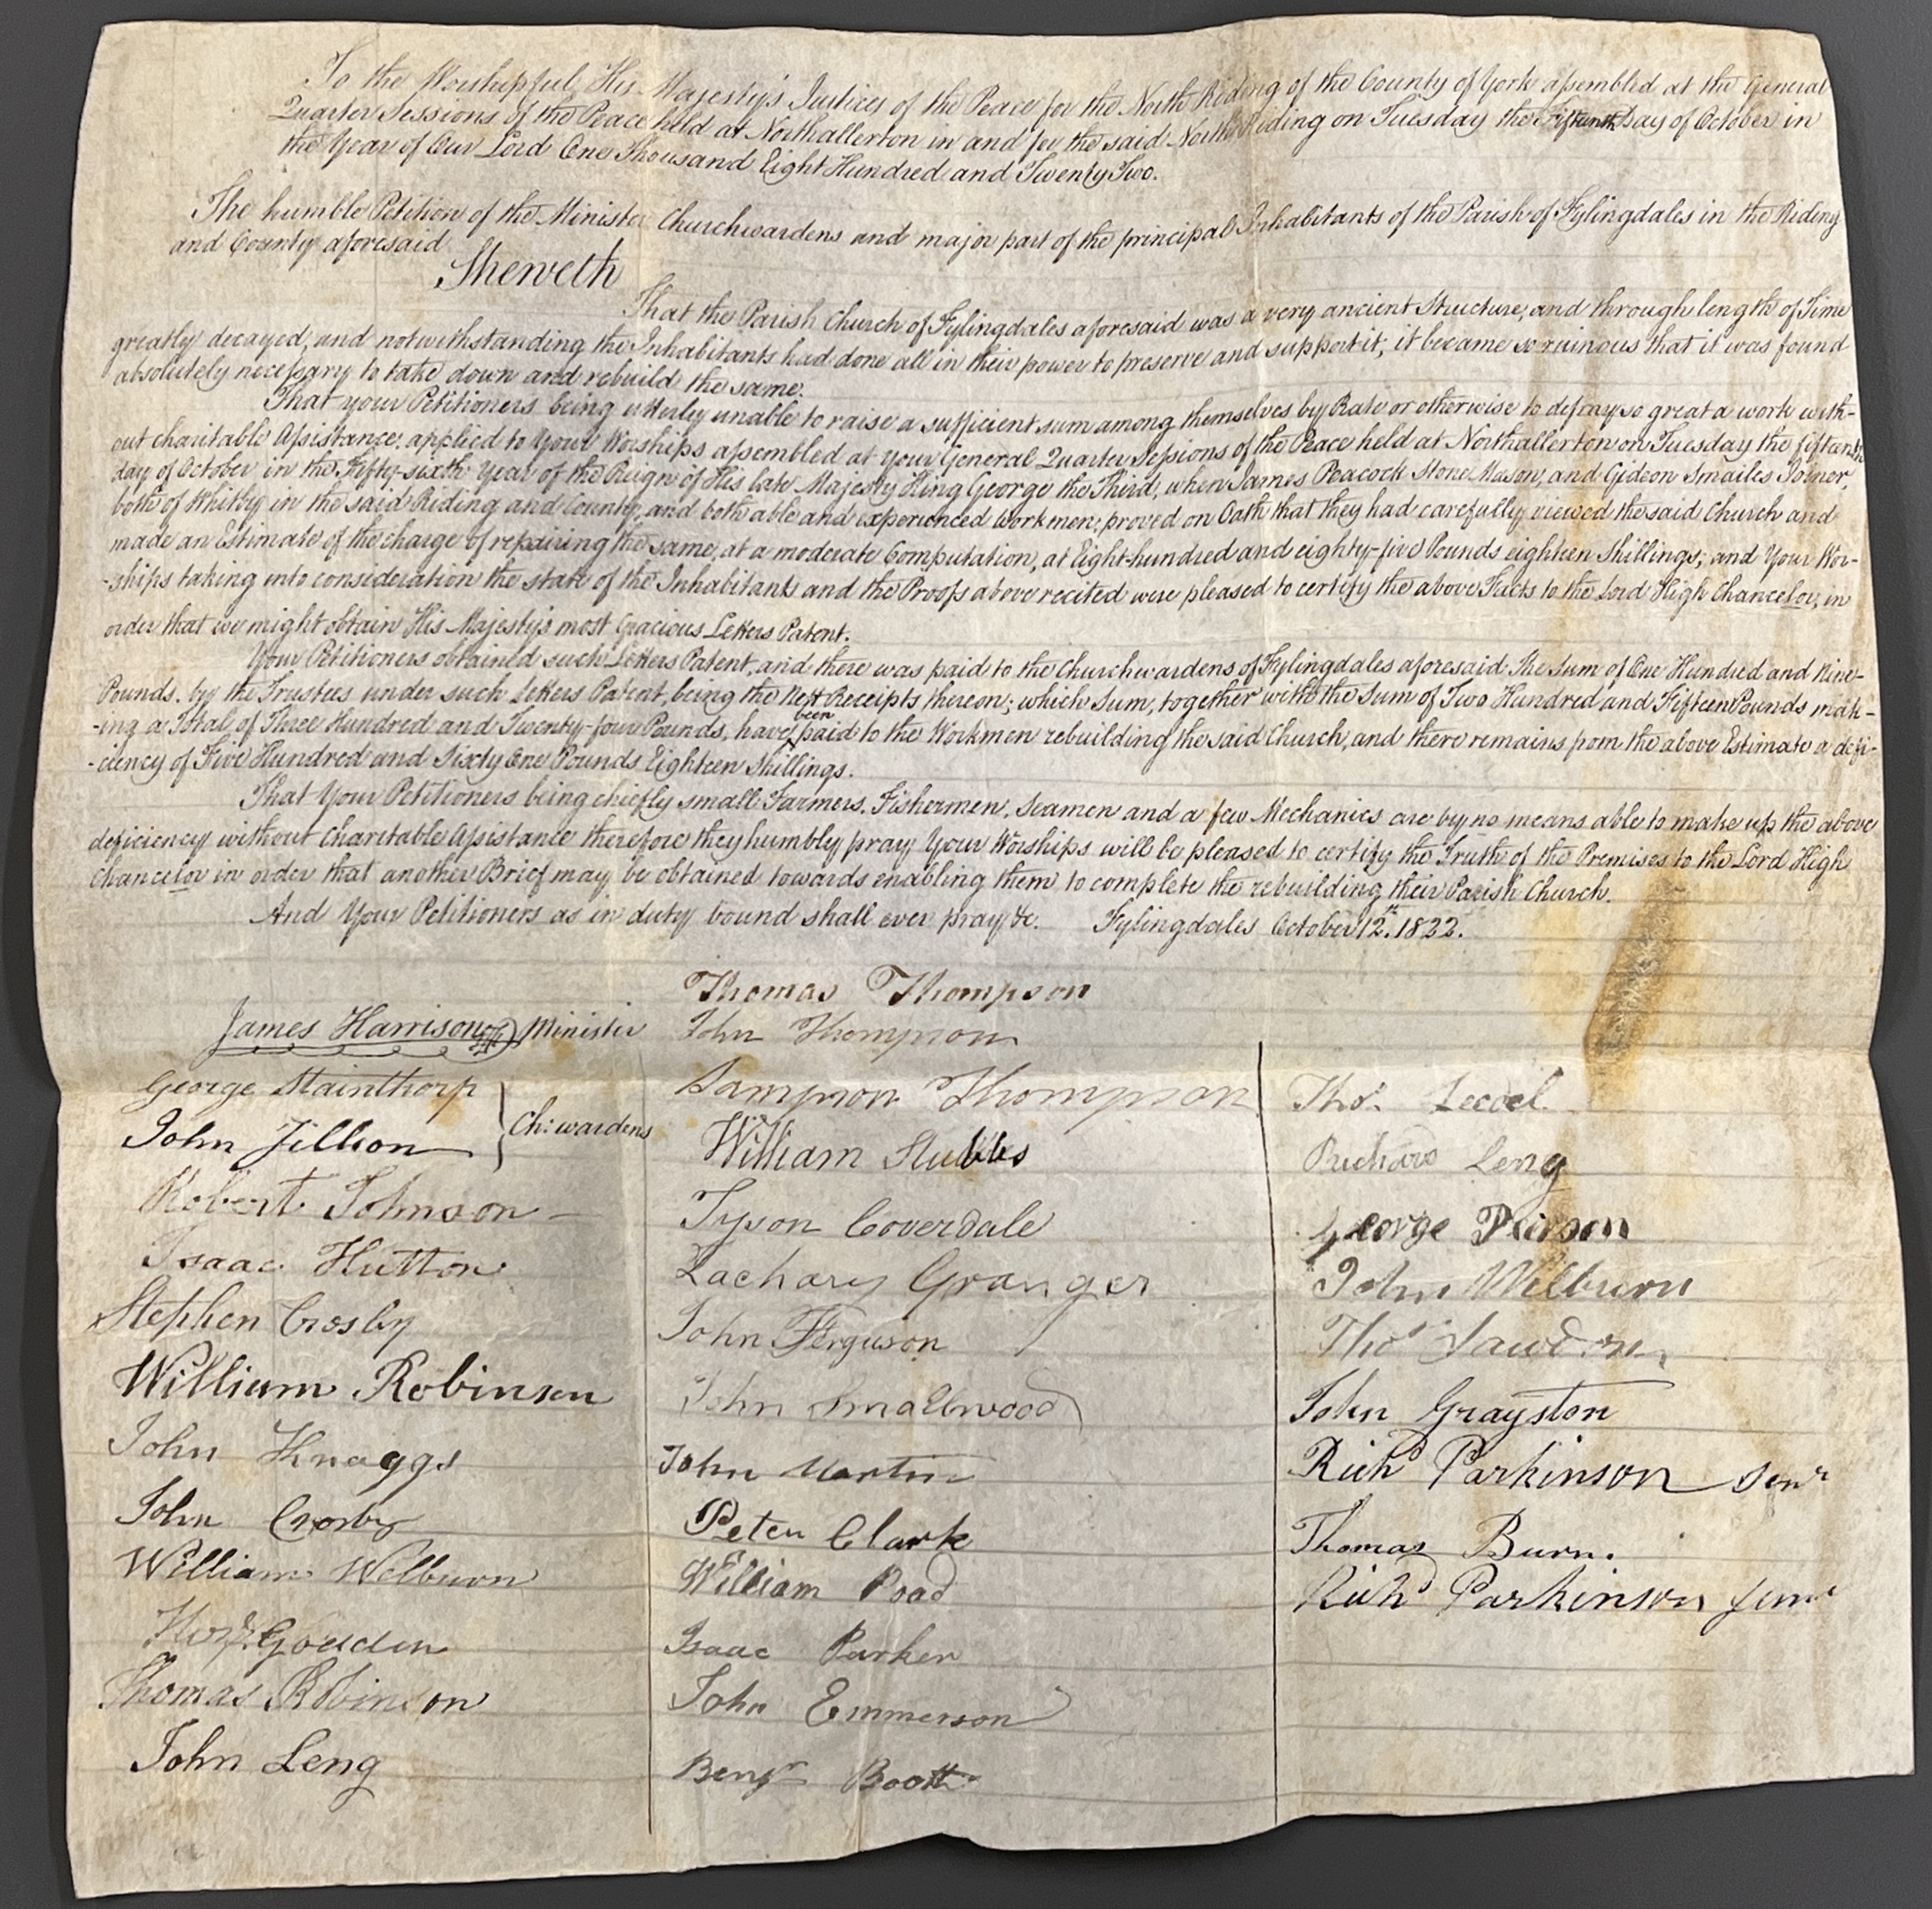 To the Worshipful, His Majesty's Justices of the Peace for the North Riding of the County of York assembled at the General
Quarter Sessions of the Peace held at Northallerton in and for the said North Riding on Tuesday the Fifteenth Day of October in
the Year of Our Lord One Thousand Eight Hundred and Twenty Two.
The humble Petition of the Minister Churchwardens and major part of the principal Inhabitants of the Parish of Fylingdales in the Riding
and County aforesaid
Sheweth
That the Parish Church of Fylingdales aforesaid was a very ancient Structure, and through length of Time
greatly decayed, and notwithstanding the Inhabitants had done all in their power to preserve and support it, it became so ruinous that it was found
absolutely necessary to take down and rebuild the same.
That your Petitioners being utterly unable to raise a sufficient sum among themselves by Rate or otherwise to defray so great a work with-
out charitable Assistance, applied to Your Worships assembled at your General Quarter Sessions of the Peace held at Northallerton on Tuesday the fifteenth
day of October in the Fifty-sixth Year of the Reign of His late Majesty King George the Third, when James Peacock Stone Mason, and Gideon Smailes Joiner,
both of Whitby in the said Riding and County, and both able and experienced Workmen, proved on Oath that they had carefully viewed the said Church and
made an Estimate of the charge of repairing the same, at a moderate Computation, at Eight-hundred and eighty-five Pounds eighteen Shillings; and Your Wor-
-ships taking into consideration the state of the Inhabitants and the Proofs above recited were pleased to certify the above Facts to the Lord High Chancelor, in
order that we might obtain His Majesty's most Gracious Letters Patent.
Your Petitioners obtained such Letters Patent, and there was paid to the Churchwardens of Fylingdales aforesaid the Sum of One Hundred and Nine-
Pounds. by the Trustees under such Letters Patent, being the Nett Receipts thereon; which Sum, together with the Sum of Two Hundred and Fifteen Pounds mak-
-ing a Total of Three Hundred and Twenty-four Pounds, have been paid to the Workmen rebuilding the said Church, and there remains from the above Estimate a defi-
-ciency of Five Hundred and Sixty One Pounds Eighteen Shillings.
That Your Petitioners being chiefly small Farmers, Fishermen, Seamen and a few Mechanics are by no means able to make up the above
deficiency without Charitable Assistance therefore they humbly pray Your Worships will be pleased to certify the Truth of the Premises to the Lord High
Chancelor in order that another Brief may be obtained towards enabling them to complete the rebuilding their Parish Church.
And Your Petitioners as in duty bound shall ever pray &c. Fylingdales October 12th. 1822.
James Harrison Minister
George Stainthorp
John Jillson
Ch: wardens
Robert Johnson
Isaac Hutton
Stephen Crosby
William Robinson
John Knaggs
John Crosby
William Welburn
Thomas Robinson
John Leng
Thomas Thompson
John Thompson
Sampson Thompson
William Stubbs
Tyson Coverdale
Zachary Granger
John Ferguson
John Smallwood
John Martin
Peter Clark
William Poad
Isaac Parker
John Emmerson
Benjn Booth
Thos.
Richard Leng
George Peirson
John Wilburn
Thos Sawdon
John Grayston
Richd Parkinson Senr
Thomas Burn.
Richd Parkinson Junr